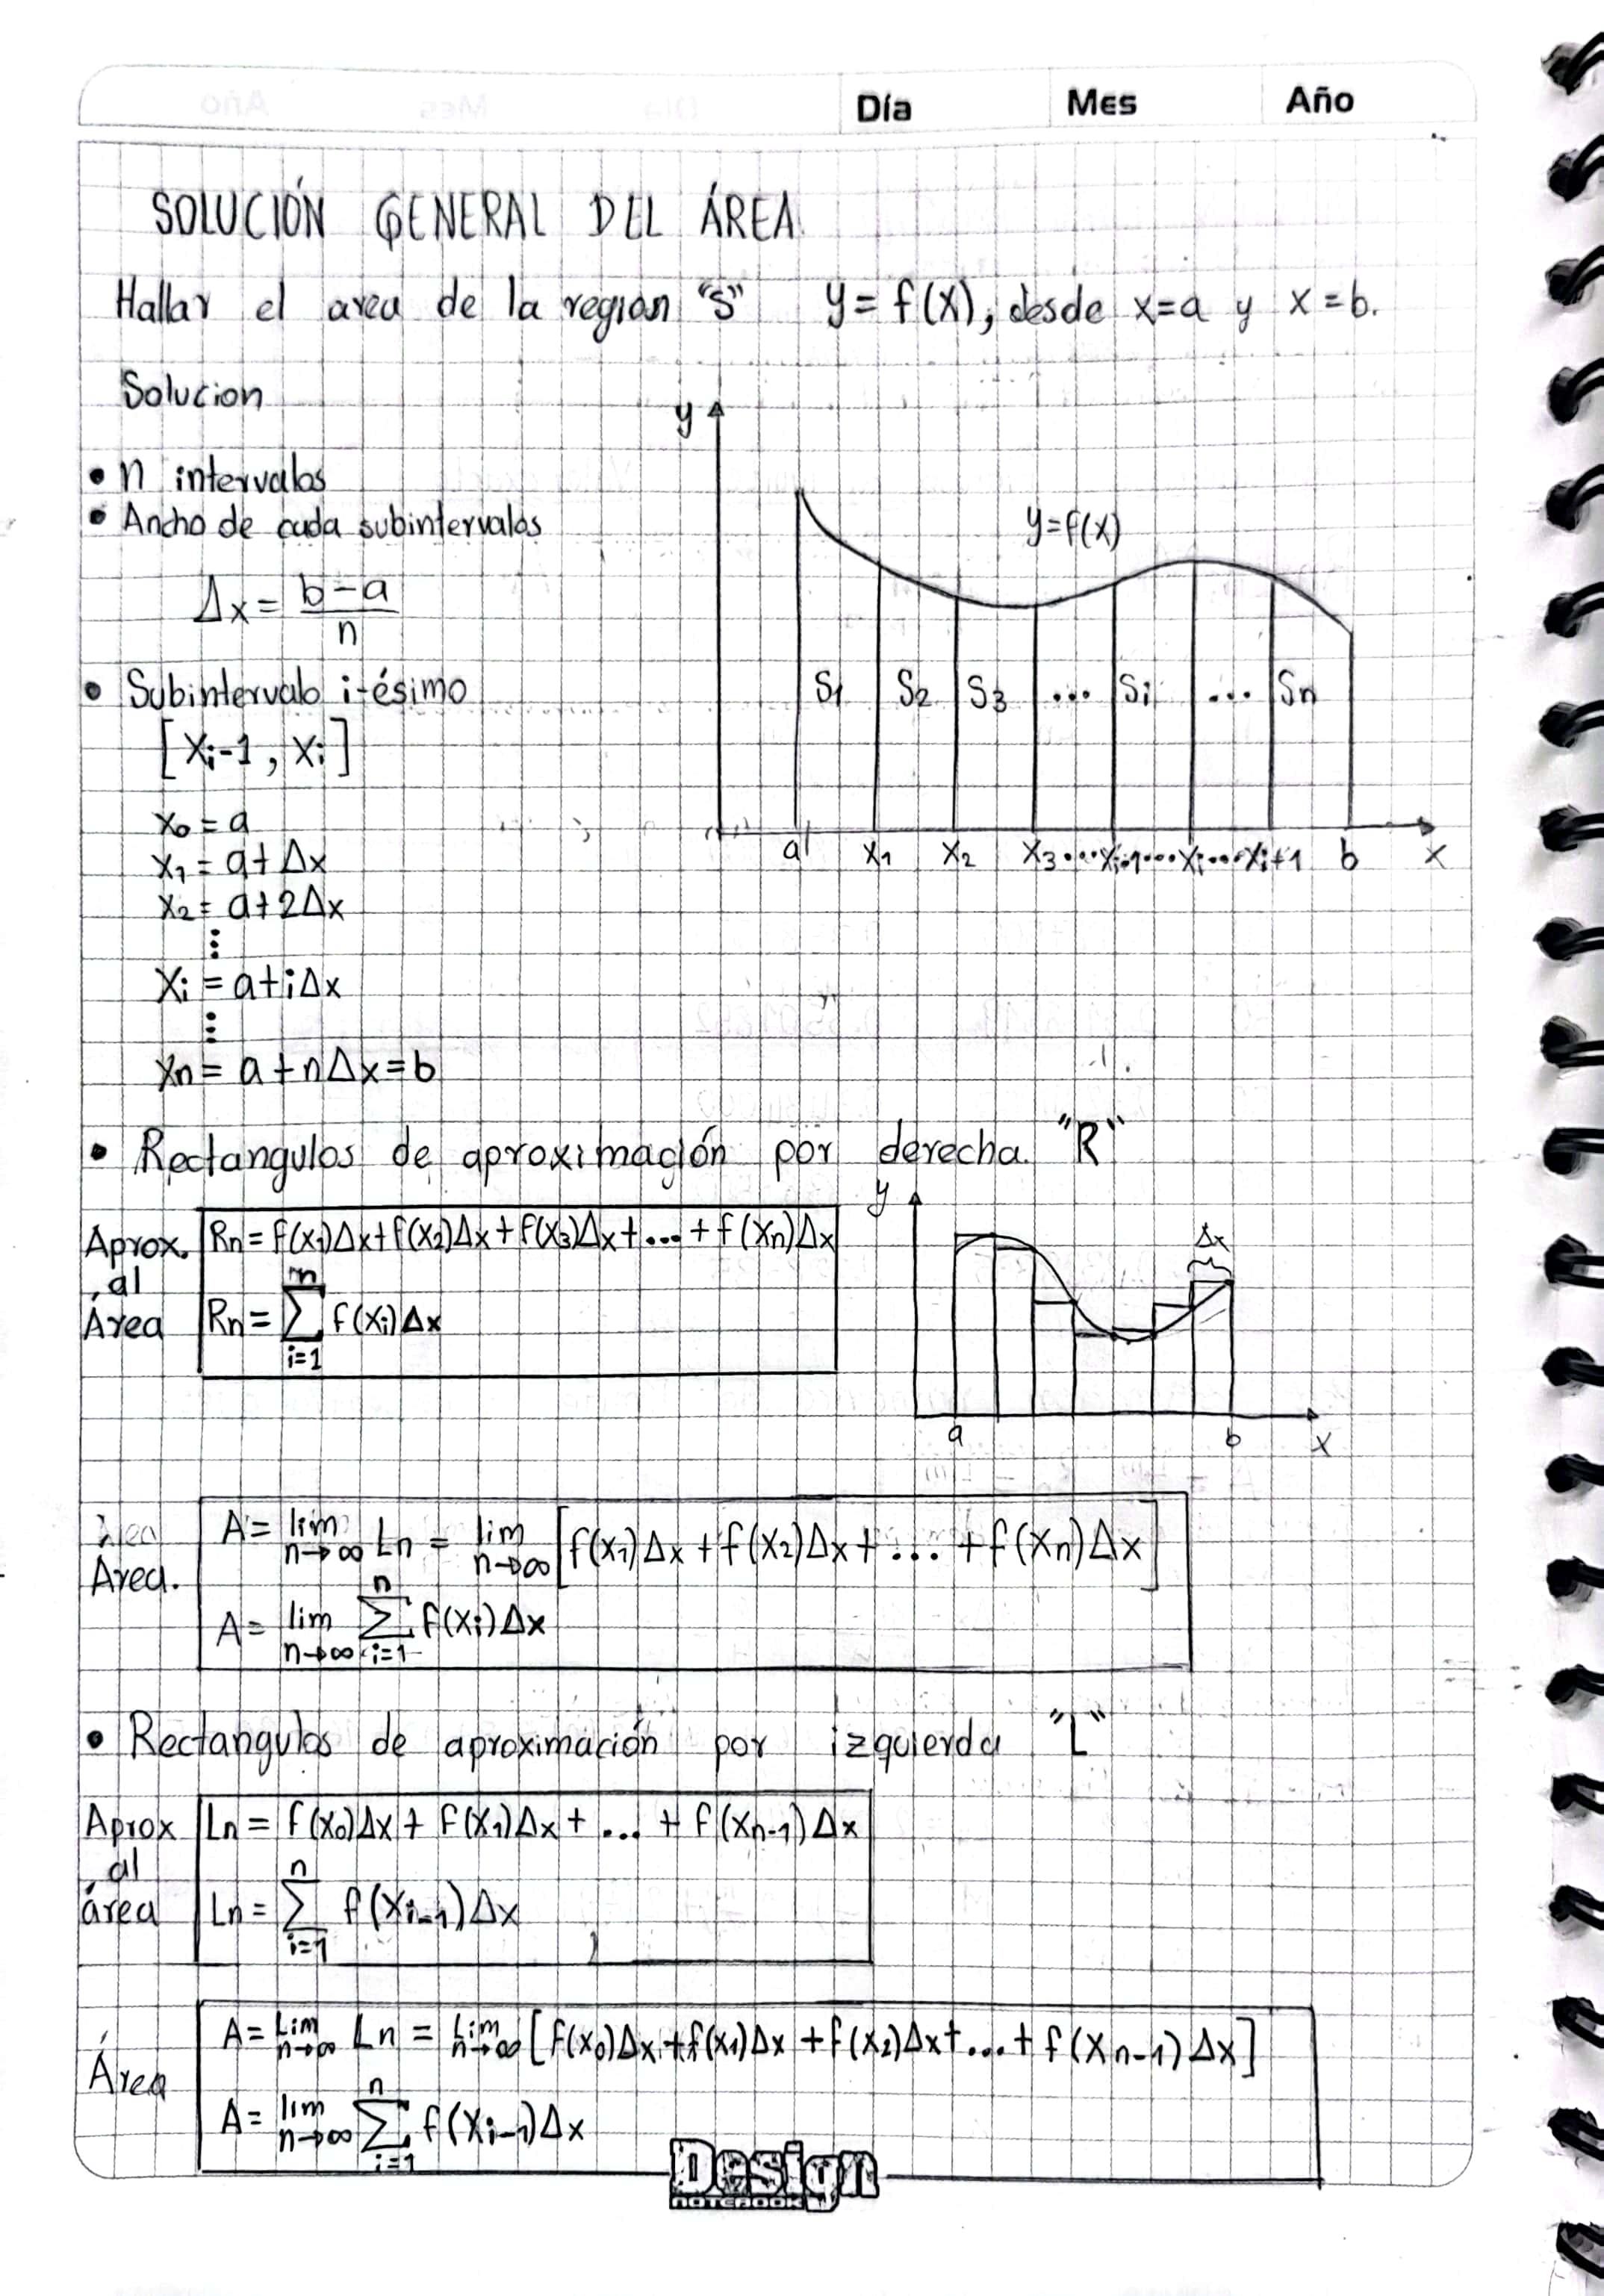 Día Mes Año
SOLUCIÓN GENERAL DEL ÁREA
Hallar el area de la región "S" y = f(x), desde x=a y x=b.
Solucion
• n intervalos
• Ancho de cada subintervalos
Δx = (b-a)/n
• Subintervalo i-ésimo
[Xi-1, Xi]
X0 = a
X1 = a+Δx
X2 = a+2Δx
⋮
Xi = a+iΔx
⋮
Xn = a+nΔx=b
y
y=f(x)
S1 S2 S3 ... Si ... Sn
a X1 X2 X3 ... Xi-1 ... Xi ... Xi+1 b X
• Rectangulos de aproximación por derecha. "R"
Aprox. al Área
Rn = f(x1)Δx+f(x2)Δx+f(x3)Δx+...+f(xn)Δx
Rn = ∑ i=1 n f(xi)Δx
y
Δx
a b X
Area.
A= lim n→∞ Ln = lim n→∞ [f(x1)Δx+f(x2)Δx+...+f(xn)Δx]
A= lim n→∞ ∑ i=1 n f(xi)Δx
• Rectangulos de aproximación por izquierda "L"
Aprox al área
Ln = f(x0)Δx+f(x1)Δx+...+f(xn-1)Δx
Ln = ∑ i=1 n f(xi-1)Δx
Área
A= Lim n→∞ Ln = Lim n→∞ [f(x0)Δx+f(x1)Δx+f(x2)Δx+...+f(xn-1)Δx]
A= lim n→∞ ∑ i=1 n f(xi-1)Δx
Design
NOTEBOOK